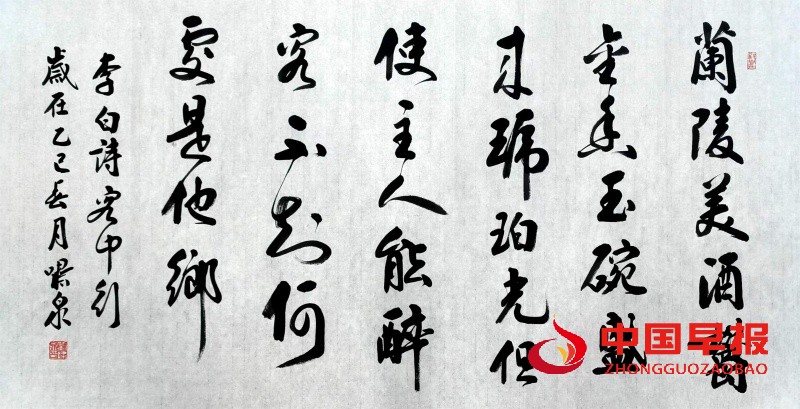 蘭陵美酒鬱
金香玉碗盛
来琥珀光但
使主人能醉
客不知何
處是他鄉
李白詩客中行
歲在乙巳春月泉
中国早报
ZHONGGUOZAOBAO